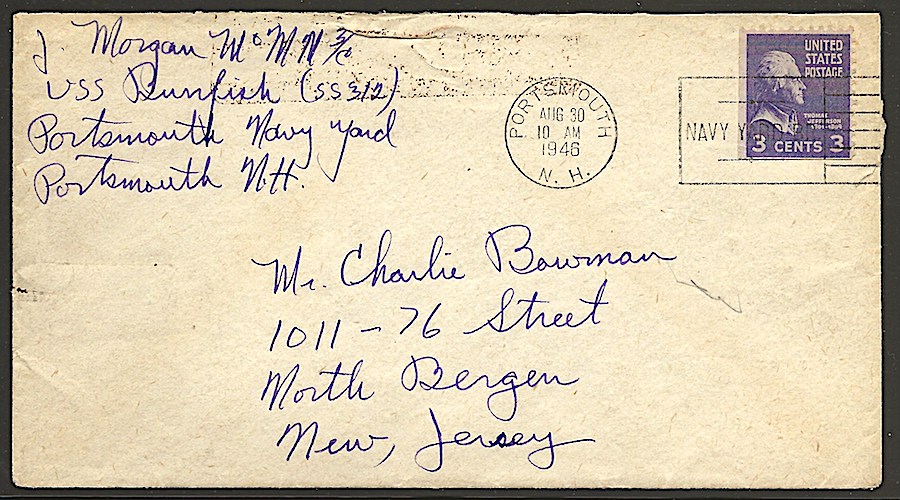 J. Morgan MoMM 3/c
USS Burrfish (SS 312)
Portsmouth Navy Yard
Portsmouth N.H.
PORTSMOUTH
AUG 30
10 AM
1946
N. H.
NAVY
UNITED
STATES
POSTAGE
THOMAS
JEFFERSON
3 CENTS 3
Mr. Charlie Bowman
1011 - 76 Street
North Bergen
New, Jersey